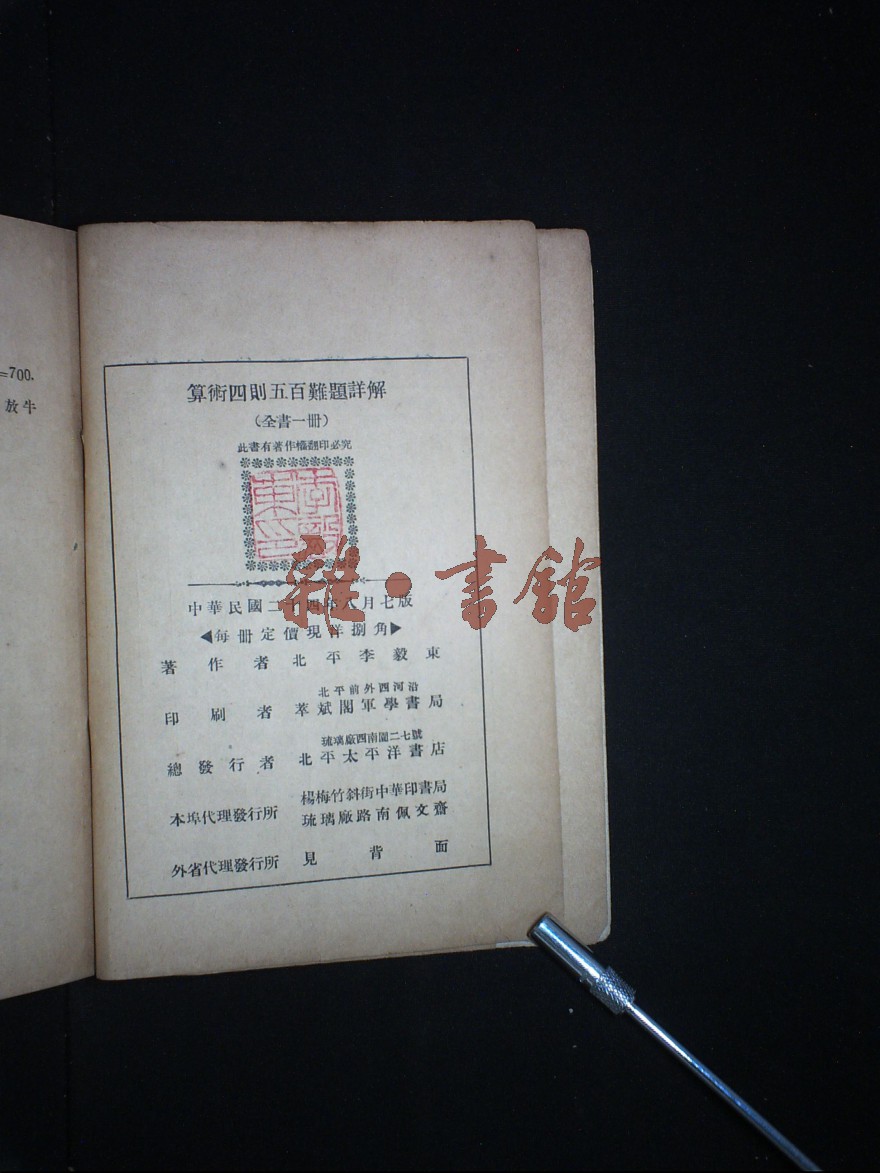 =700.
放牛
算術四則五百難題詳解
(全書一冊)
此書有著作權翻印必究
李毅東印
雜·書館
中華民國二十四年八月七版
◀每冊定價現洋捌角▶
著作者 北平李毅東
北平前外西河沿
印刷者 萃斌閣軍學書局
琉璃廠西南園二七號
總發行者 北平太平洋書店
本埠代理發行所 楊梅竹斜街中華印書局
琉璃廠路南佩文齋
外省代理發行所 見背面